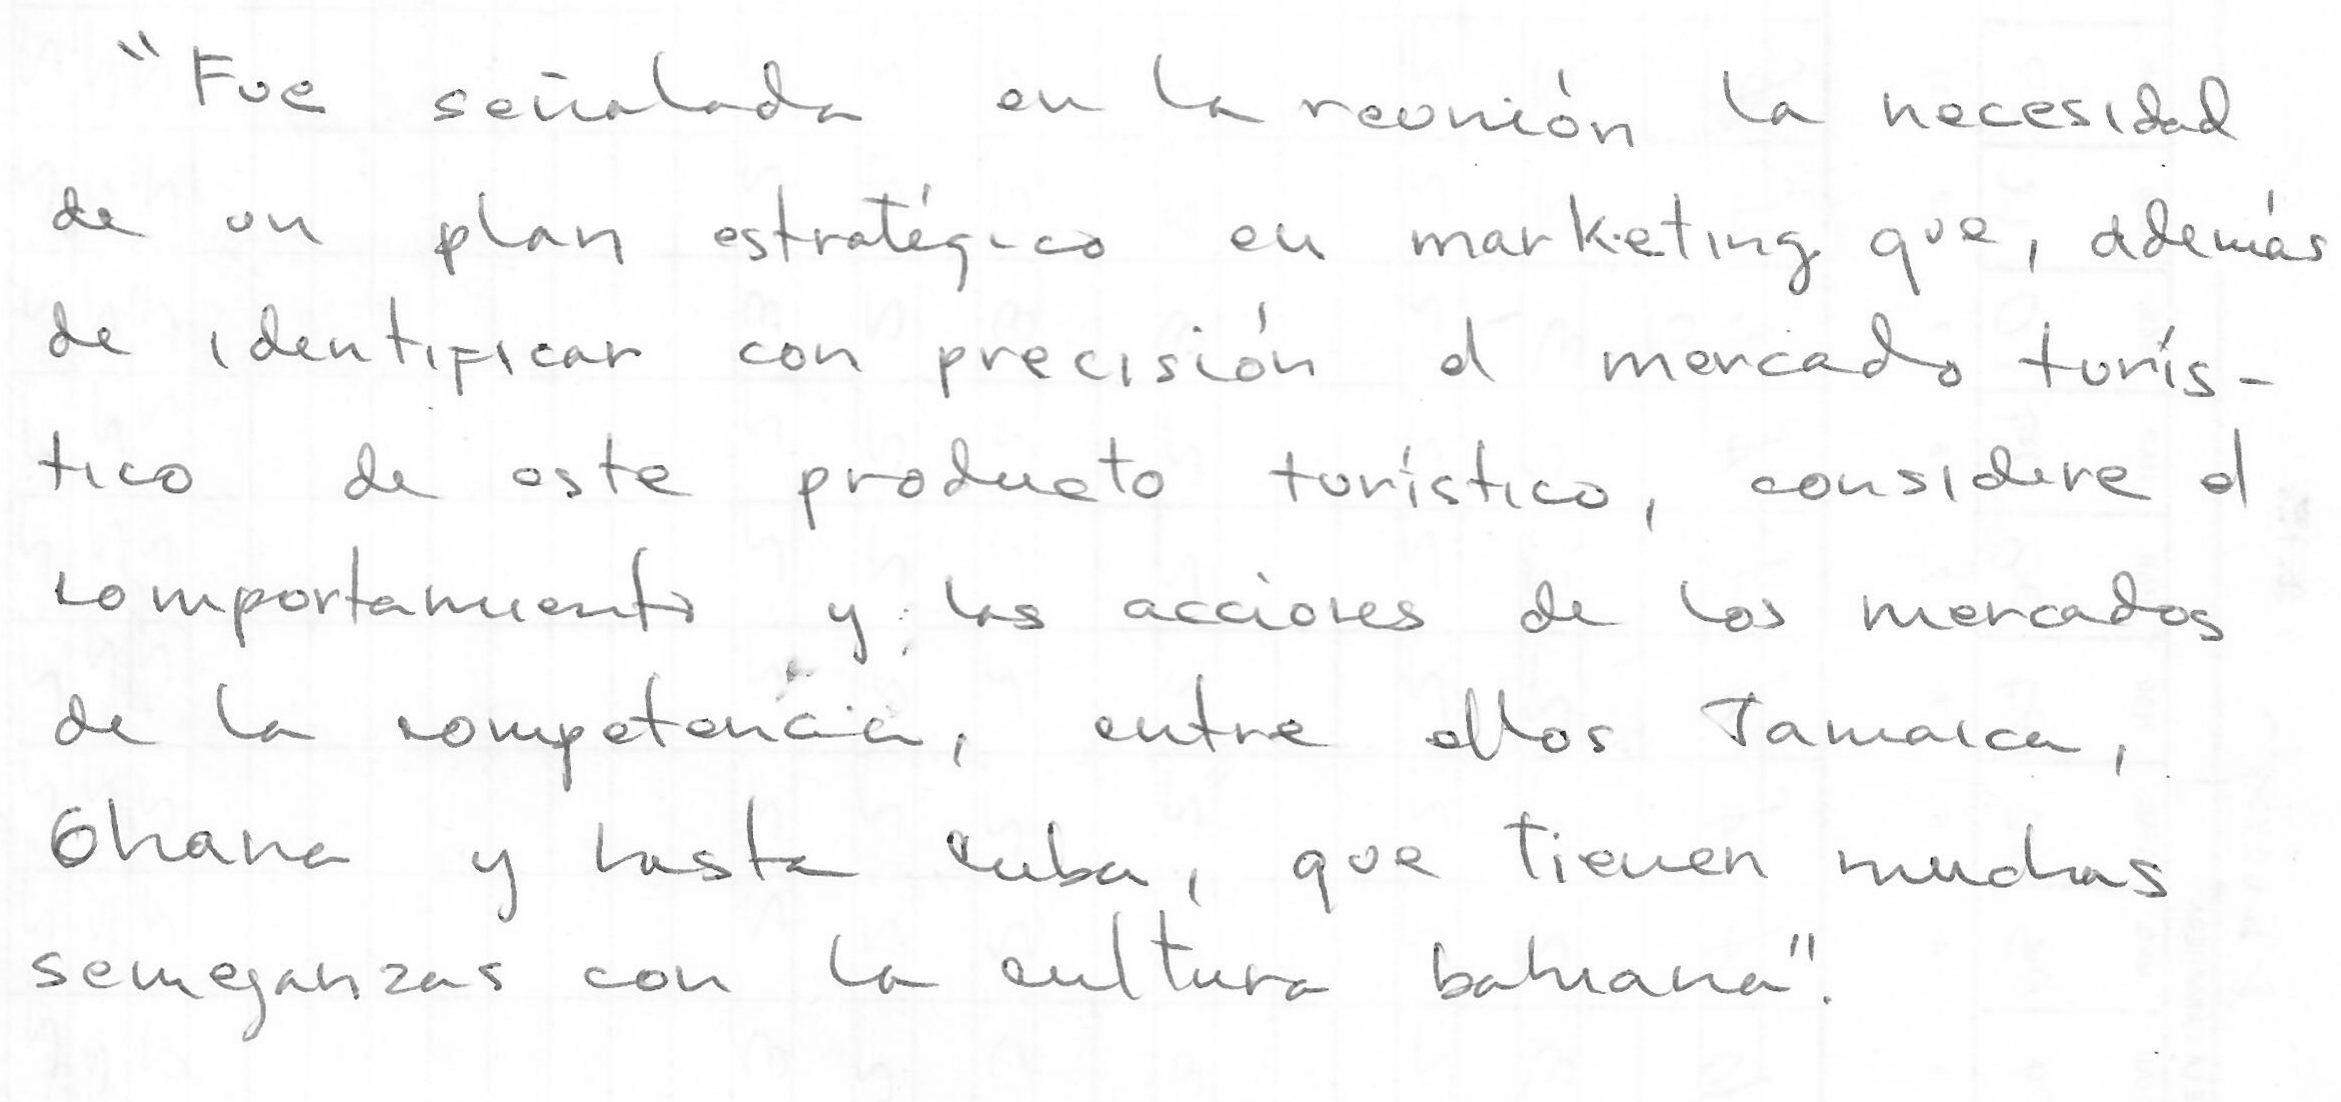 "Fue señalada en la reunión la necesidad
de un plan estratégico en marketing que, además
de identificar con precisión el mercado turís-
tico de este producto turístico, considere el
comportamiento y las acciones de los mercados
de la competencia, entre ellos Jamaica,
Ghana y hasta Cuba, que tienen muchas
semeganzas con la cultura bahiana".